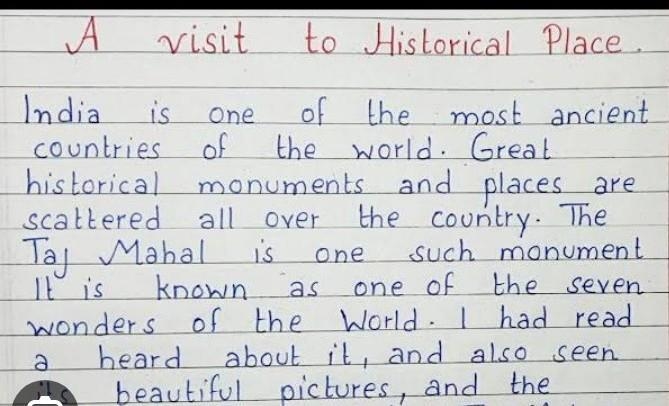 A visit to Historical Place.
India is one of the most ancient
countries of the world. Great
historical monuments and places are
scattered all over the country. The
Taj Mahal is one such monument
It is known as one of the seven
wonders of the World. I had read
a heard about it, and also seen
its beautiful pictures, and the